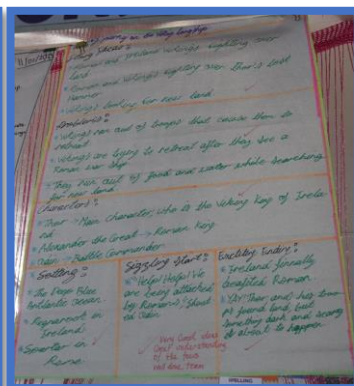 Journey on the Viking longship
Story Ideas:
Roman and Ireland Vikings fighting over
land
Roman and Vikings fighting over Thor's lost
hammer
Vikings looking for new land
Problems:
Vikings ran out of troops that causes them to
retreat
Vikings are trying to retreat after they see a
Roman war ship
They ran out of food and water while searching
for new land
Characters:
Thor → Main character, who is the Viking King of Irela-
nd
Alexander the Great → Roman King
Odin → Battle Commander
Setting:
The Deep Blue
Atlantic Ocean.
in
Ireland
in
Rome
Sizzling Start:
"Help! Help! We
are being attacked
by Romans", Shouted
Odin
Very Good ideas
Good understanding
of the task
Well done, team
Exciting Ending:
Ireland finally
defeated Roman.
Thor and his tea-
m found land, but
something dark and scary
is about to happen